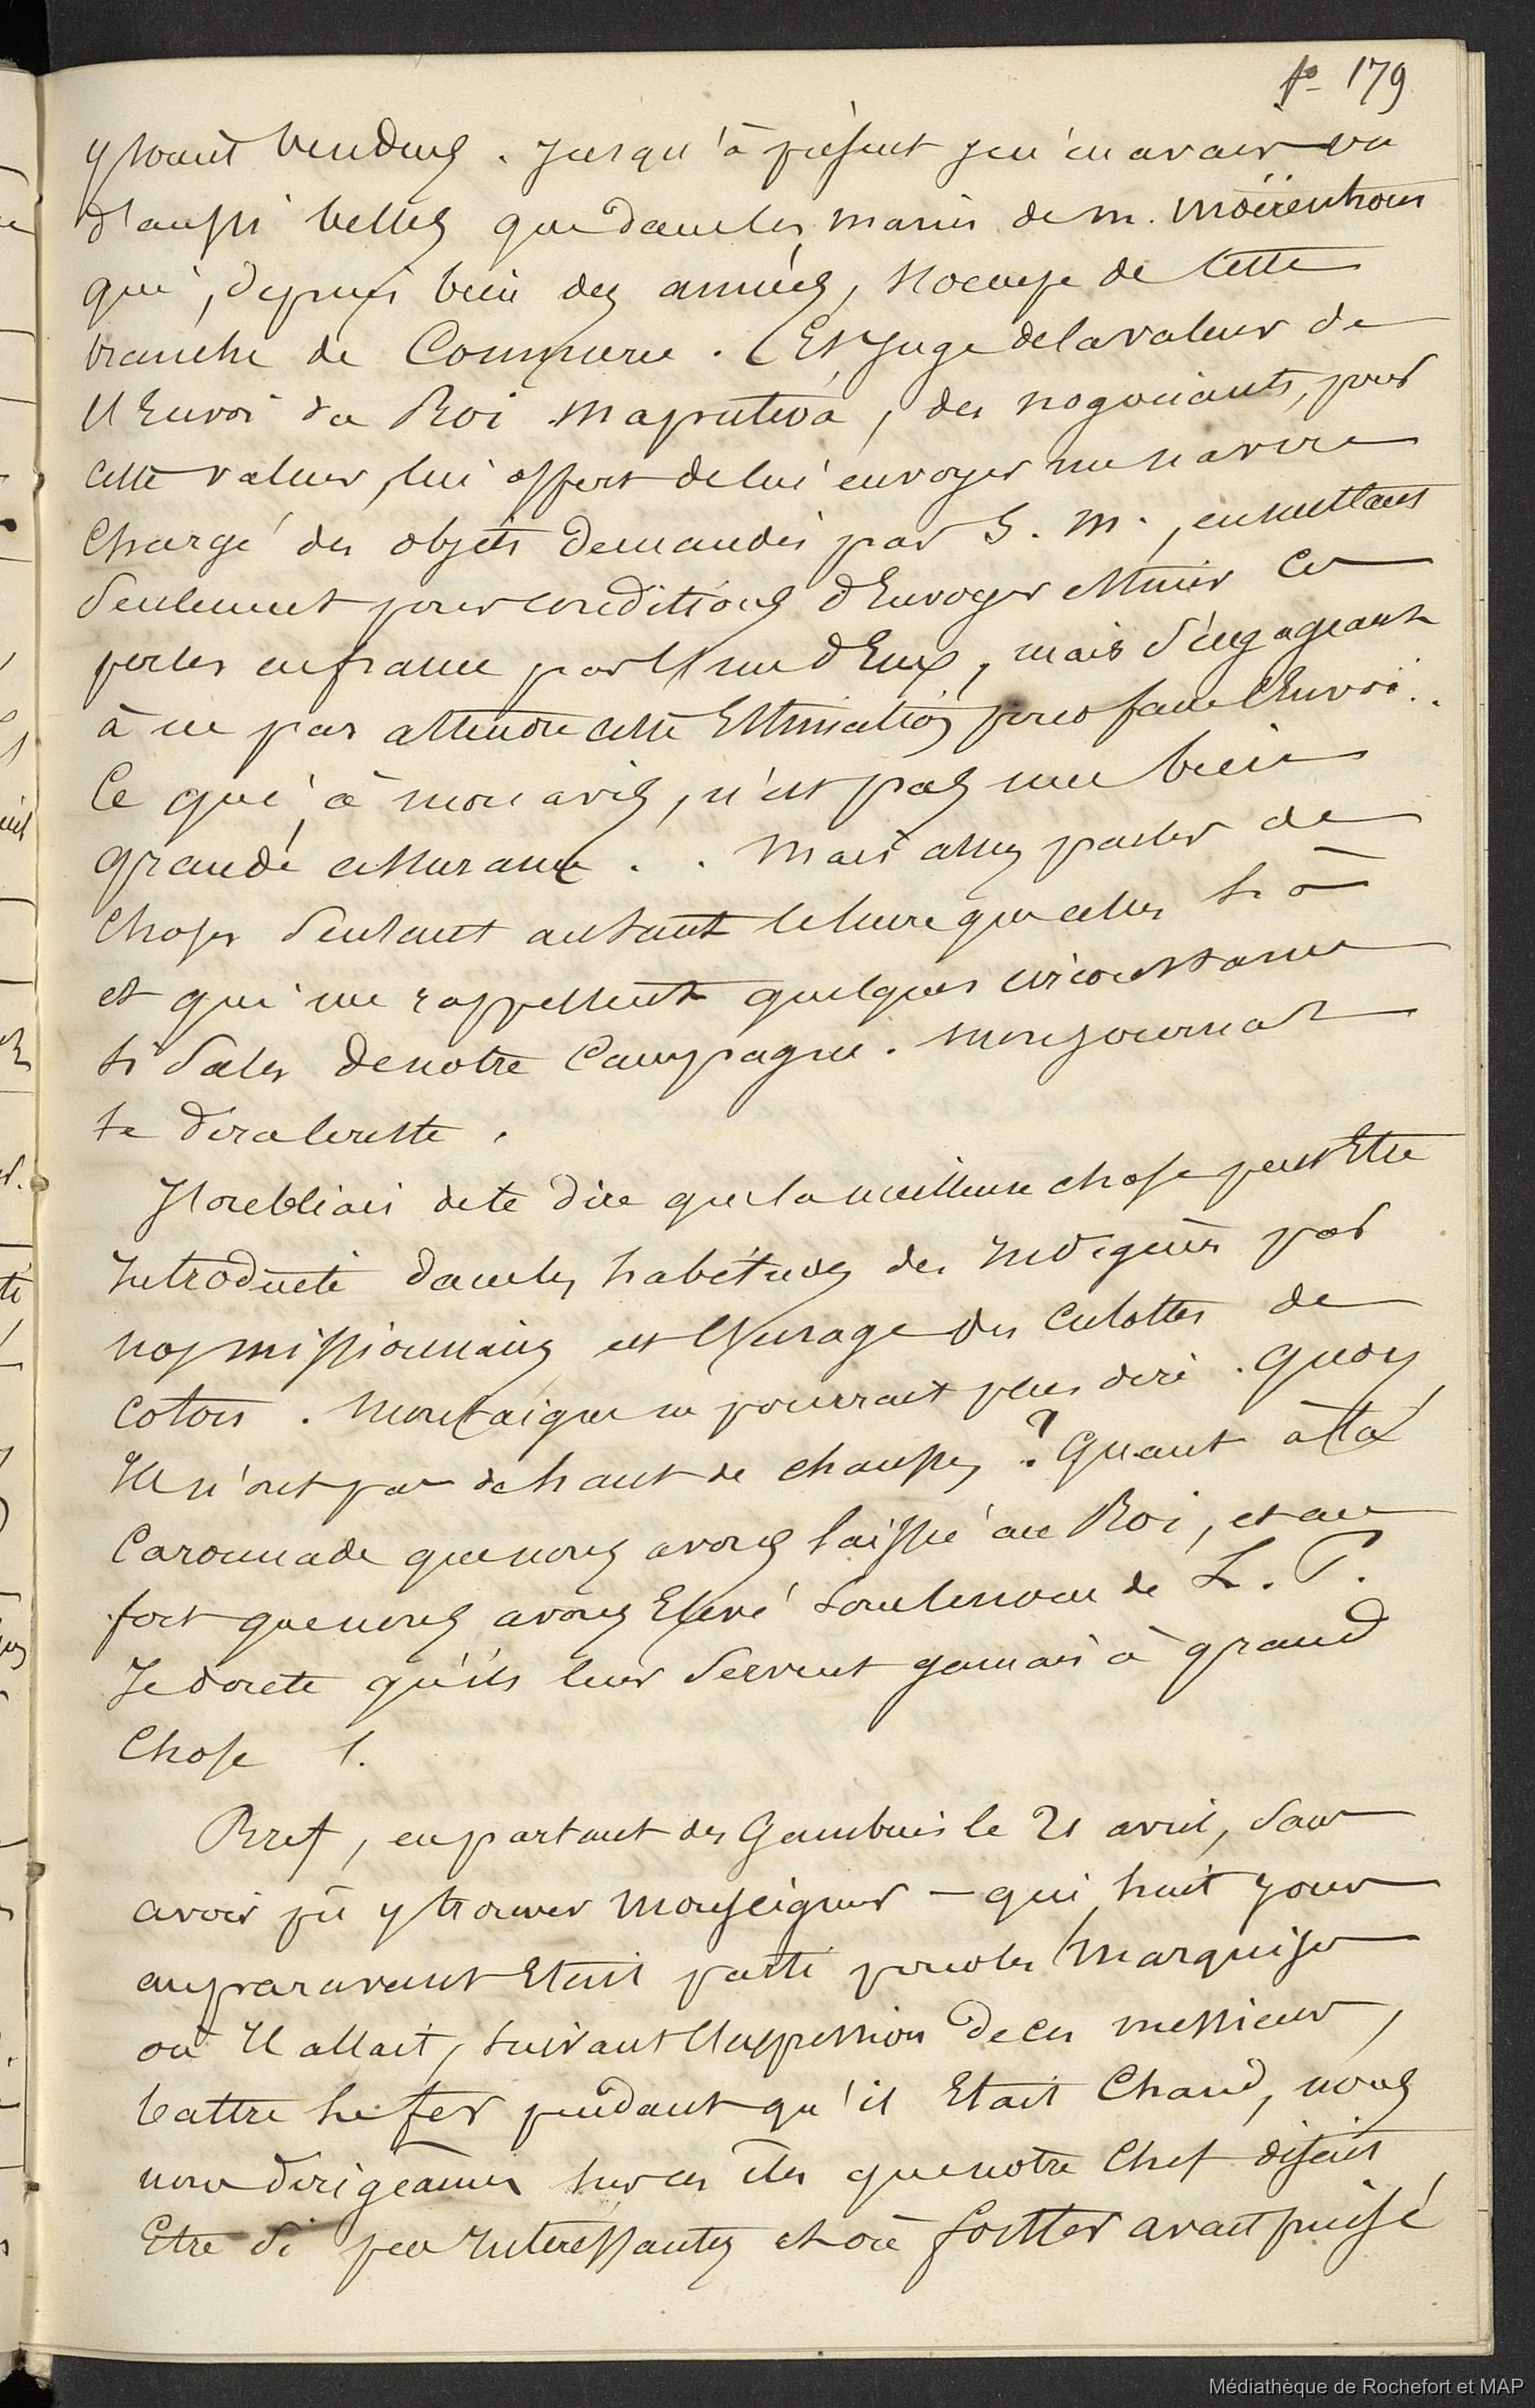 fo 179
y soient vendues. Jusqu'à présent je n'en avais vu
d'aussi belles que dans les mains de m. Moërenhout
qui, depuis bien des années, s'occupe de cette
branche de Commerce. Et Juge de la valeur de
l'Envoi du Roi Maputeoa, des négociants, pour
cette valeur, lui offert de lui envoyer un navire
Chargé des objets demandés par S. M., en mettant
Seulement pour conditions d'Envoyer estimer ces
perles en france par l'un d'Eux, mais s'engageant
à ne pas attendre cette Estimation pour faire l'Envoi..
Ce qui, à mon avis, n'est pas une bien
grande assurance.. Mais assez parler de
Choses sentant autant le lucre que celles là
et qui me rappellent quelques circonstances
si Sales de notre Campagne. Mon journal
te dira le reste.
J'oubliais de te dire que la meilleure chose peut Etre
Introduite dans les habitudes des Indigènes par
nos missionnaires est l'usage des Culottes de
coton. Montaigne ne pourrait plus dire. Quoy
Ils n'ont pas de haut de chausses? Quant à la
Caronnade que nous avons laissée au Roi, et au
fort que nous avons Elevé sous le nom de L. P.
Je doute qu'ils leur servent jamais à grand
Chose !.
Bref, en partant des Gambier le 21 avril, sans
avoir pû y trouver Monseigneur - qui huit jours
auparavant Etait parti pour les Marquises
où Il allait, suivant l'expression de ces messieurs,
battre le fer pendant qu'il Etait Chaud, nous
nous dirigeâmes sur ces îles que notre Chef disait
Etre si peu Intéressantes et où fortter avait puisé
Médiathèque de Rochefort et MAP